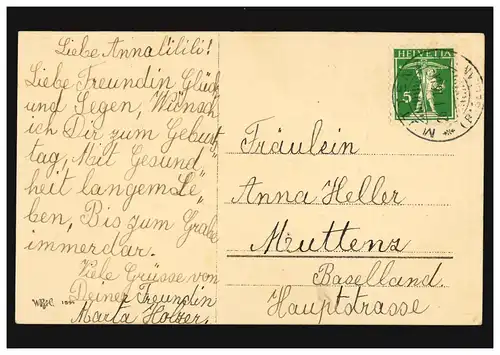 Liebe Annalilili!
Liebe Freundin Glück
und Segen, Wünsch
ich Dir zum Geburts
tag, Mit Gesund
heit langem Le
ben, Bis zum Grabe
immerdar.
Viele Grüsse von
Deiner Freundin
Marta Holzer.
HELVETIA
5
Fräulein
Anna Heller
Muttenz
Baselland.
Hauptstrasse